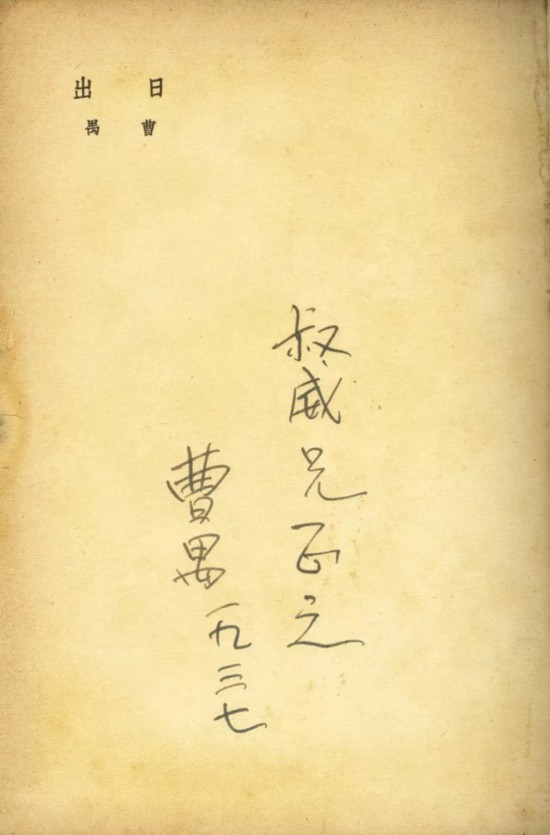 日出
曹禺
叔威兄正之
曹禺 一九三七